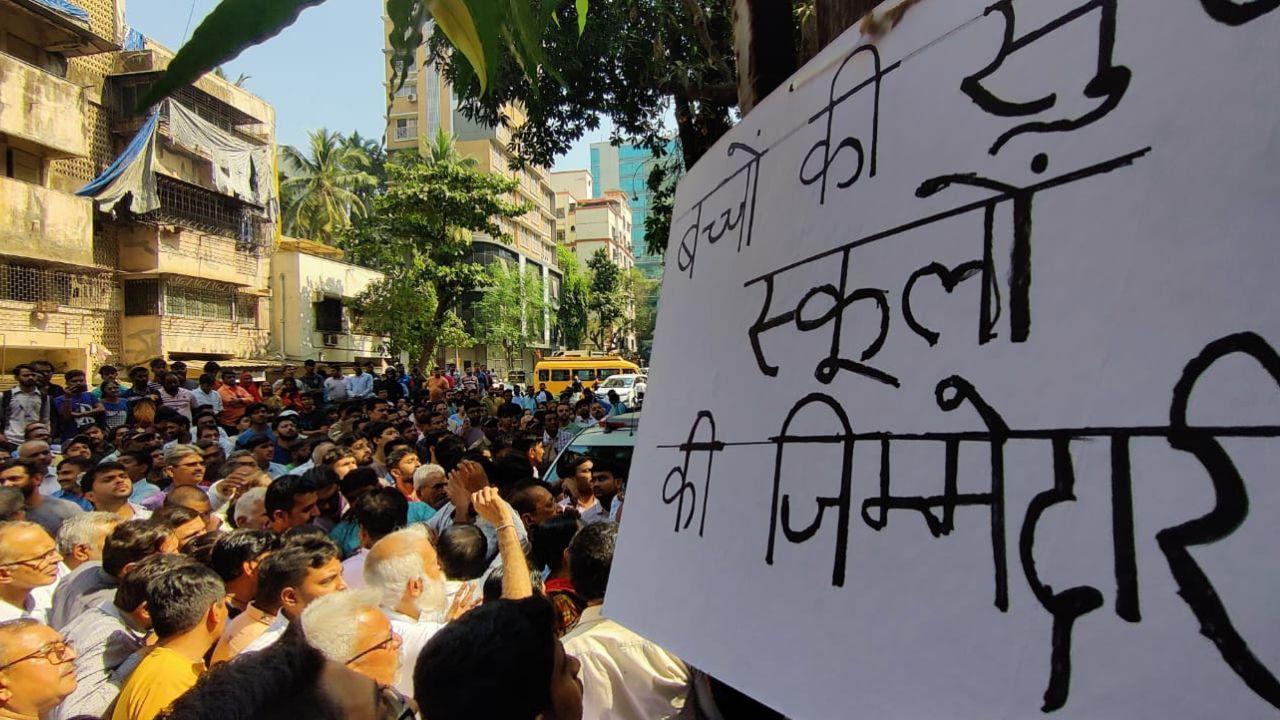 बच्चों की सु
स्कूलों
की जिम्मेदारी